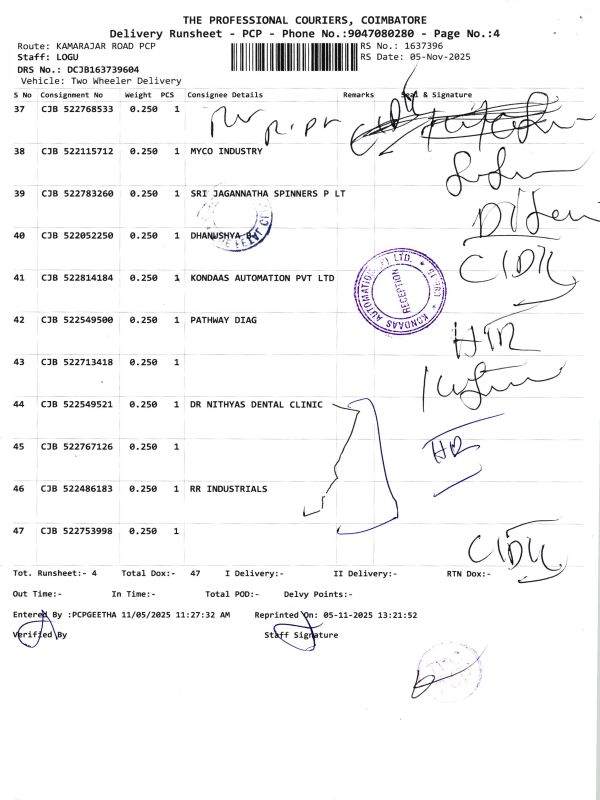 THE PROFESSIONAL COURIERS, COIMBATORE
Delivery Runsheet - PCP - Phone No.:9047080280 - Page No.:4
Route: KAMARAJAR ROAD PCP RS No.: 1637396
Staff: LOGU RS Date: 05-Nov-2025
DRS No.: DCJB163739604
Vehicle: Two Wheeler Delivery
S No Consignment No Weight PCS Consignee Details Remarks Seal & Signature
37 CJB 522768533 0.250 1
38 CJB 522115712 0.250 1 MYCO INDUSTRY
39 CJB 522783260 0.250 1 SRI JAGANNATHA SPINNERS P LT
40 CJB 522052250 0.250 1 DHANUSHYA
41 CJB 522814184 0.250 1 KONDAAS AUTOMATION PVT LTD
KONDAAS AUTOMATION (P) LTD.
RECEPTION
42 CJB 522549500 0.250 1 PATHWAY DIAG
43 CJB 522713418 0.250 1
44 CJB 522549521 0.250 1 DR NITHYAS DENTAL CLINIC
45 CJB 522767126 0.250 1
46 CJB 522486183 0.250 1 RR INDUSTRIALS
47 CJB 522753998 0.250 1
Tot. Runsheet:- 4 Total Dox:- 47 I Delivery:- II Delivery:- RTN Dox:-
Out Time:- In Time:- Total POD:- Delvy Points:-
Entered By :PCPGEETHA 11/05/2025 11:27:32 AM Reprinted On: 05-11-2025 13:21:52
Verified By Staff Signature